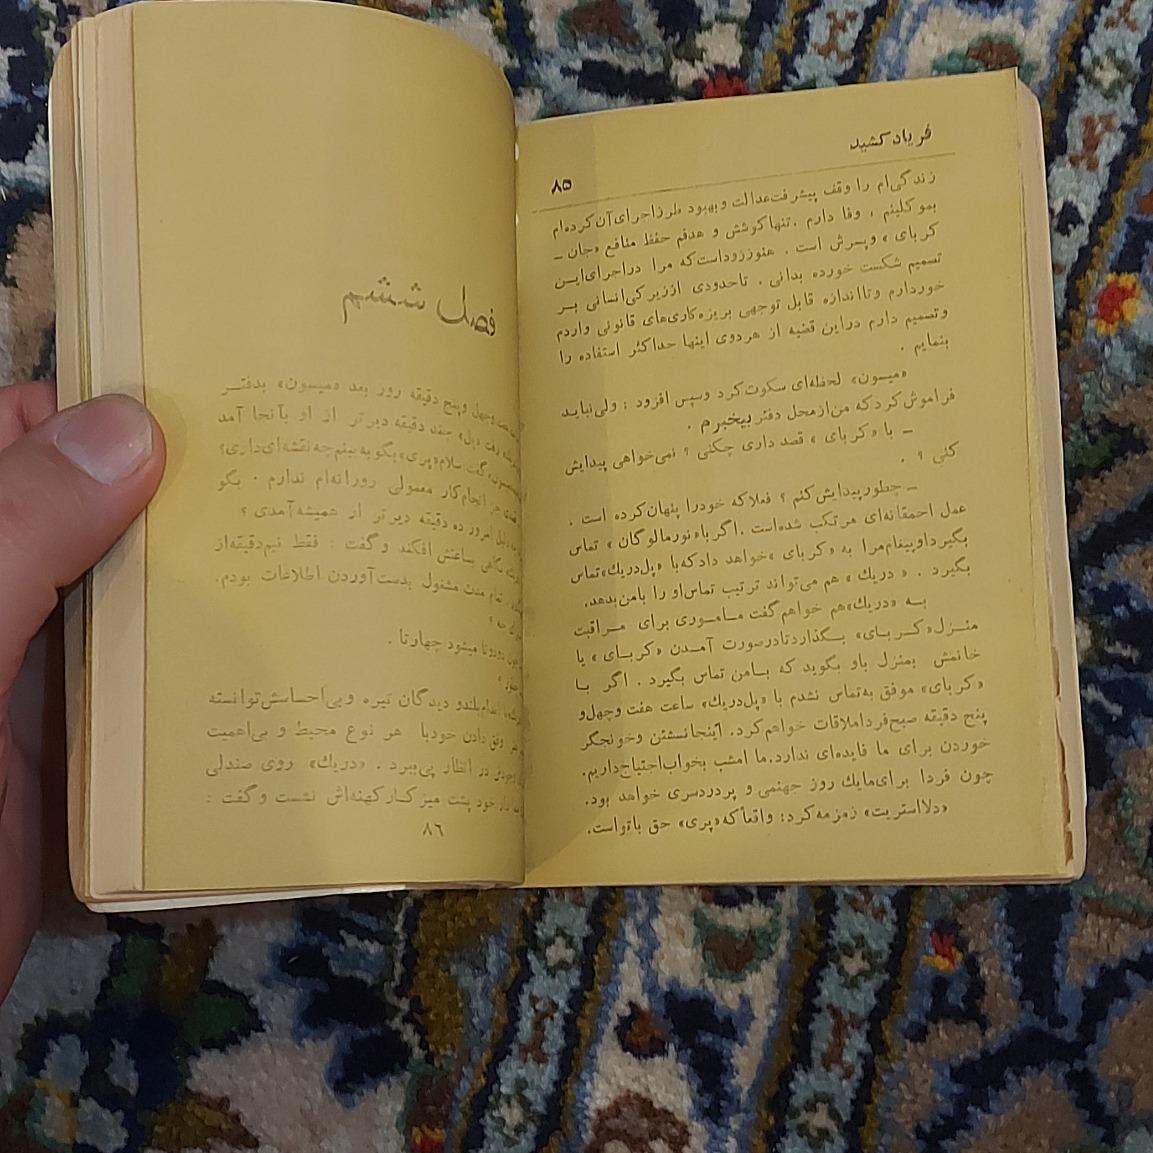 فریاد کشید
۸۵
زندگی‌ام را وقف پیشرفت‌عدالت و بهبود طرزاجرای‌آن‌کرده‌ام
بموکلینم ، وفا دارم . تنهاکوشش و هدفم حفظ منافع «جان ـ
کربای » وپسرش است . هنوززوداست‌که مرا دراجرای‌این
تصمیم شکست خورده بدانی . تاحدودی اززیرکی‌انسانی بر
خوردارم وتااندازه قابل توجهی بریزه‌کاری‌های قانونی واردم
وتصمیم دارم دراین قضیه از هردوی اینها حداکثر استفاده را
بنمایم .
«میسون» لحظه‌ای سکوت‌کرد وسپس افزود : ولی‌نباید
فراموش‌کردکه من‌ازمحل دفتر بیخبرم .
ـ با «کربای » قصد داری چکنی ؟ نمی‌خواهی پیدایش
کنی ؟ .
ـ چطورپیدایش‌کنم ؟ فعلاکه خودرا پنهان‌کرده است .
عمل احمقانه‌ای مرتکب شده‌است .اگر با«نورمالوگان » تماس
بگیرداوپیغام‌مرا به «کربای »خواهد دادکه‌با «پل‌دریك»تماس
بگیرد . « دریك » هم می‌تواند ترتیب تماس‌او را بامن‌بدهد.
بــه «دریك»هم خواهم‌گفت مــاموری برای مــراقبت
منــزل«کــربــای» بــگذاردتادرصورت آمــدن «کربــای » یا
خانمش بمنزل باو بگوید که بــامن تماس بگیرد . اگر بــا
«کربای» موفق به‌تماس نشدم با «پل‌دریك» ساعت هفت وچهل‌و
پنج دقیقه صبح‌فرداملاقات خواهم‌کرد. اینجانشستن وخونجگر
خوردن برای ما فایده‌ای ندارد.ما امشب بخواب‌احتیاج‌داریم.
چون فردا برای‌مایك روز جهنمی و پردردسری خواهد بود.
«دلااستریت» زمزمه‌کرد: واقعاً‌که«پری» حق باتواست.
فصل ششم
وچهل وپنج دقیقه روز بعد «میسون» بدفتر
رفت «پل» چند دقیقه دیرتر از او بآنجا آمد
گفت سلام«پری»بگو به‌بینم‌چه‌نقشه‌ای‌داری؟
جز انجام‌کار معمولی روزانه‌ام ندارم . بگو
امروز ده دقیقه دیرتر از همیشه‌آمدی ؟
نگاهی بساعتش افکند وگفت : فقط نیم‌دقیقه‌از
تمام مدت مشغول بدست‌آوردن اطلاعات بودم.
؟
دودوتا میشود چهارتا .
»
اندام‌بلندو دیدگان تیره و بی‌احساسش‌توانسته
وفق دادن خودبا هر نوع محیط و بی‌اهمیت
در انظار پی‌ببرد . «دریك» روی صندلی
خود پشت میزکــارکهنه‌اش نشست وگفت :
۸۶